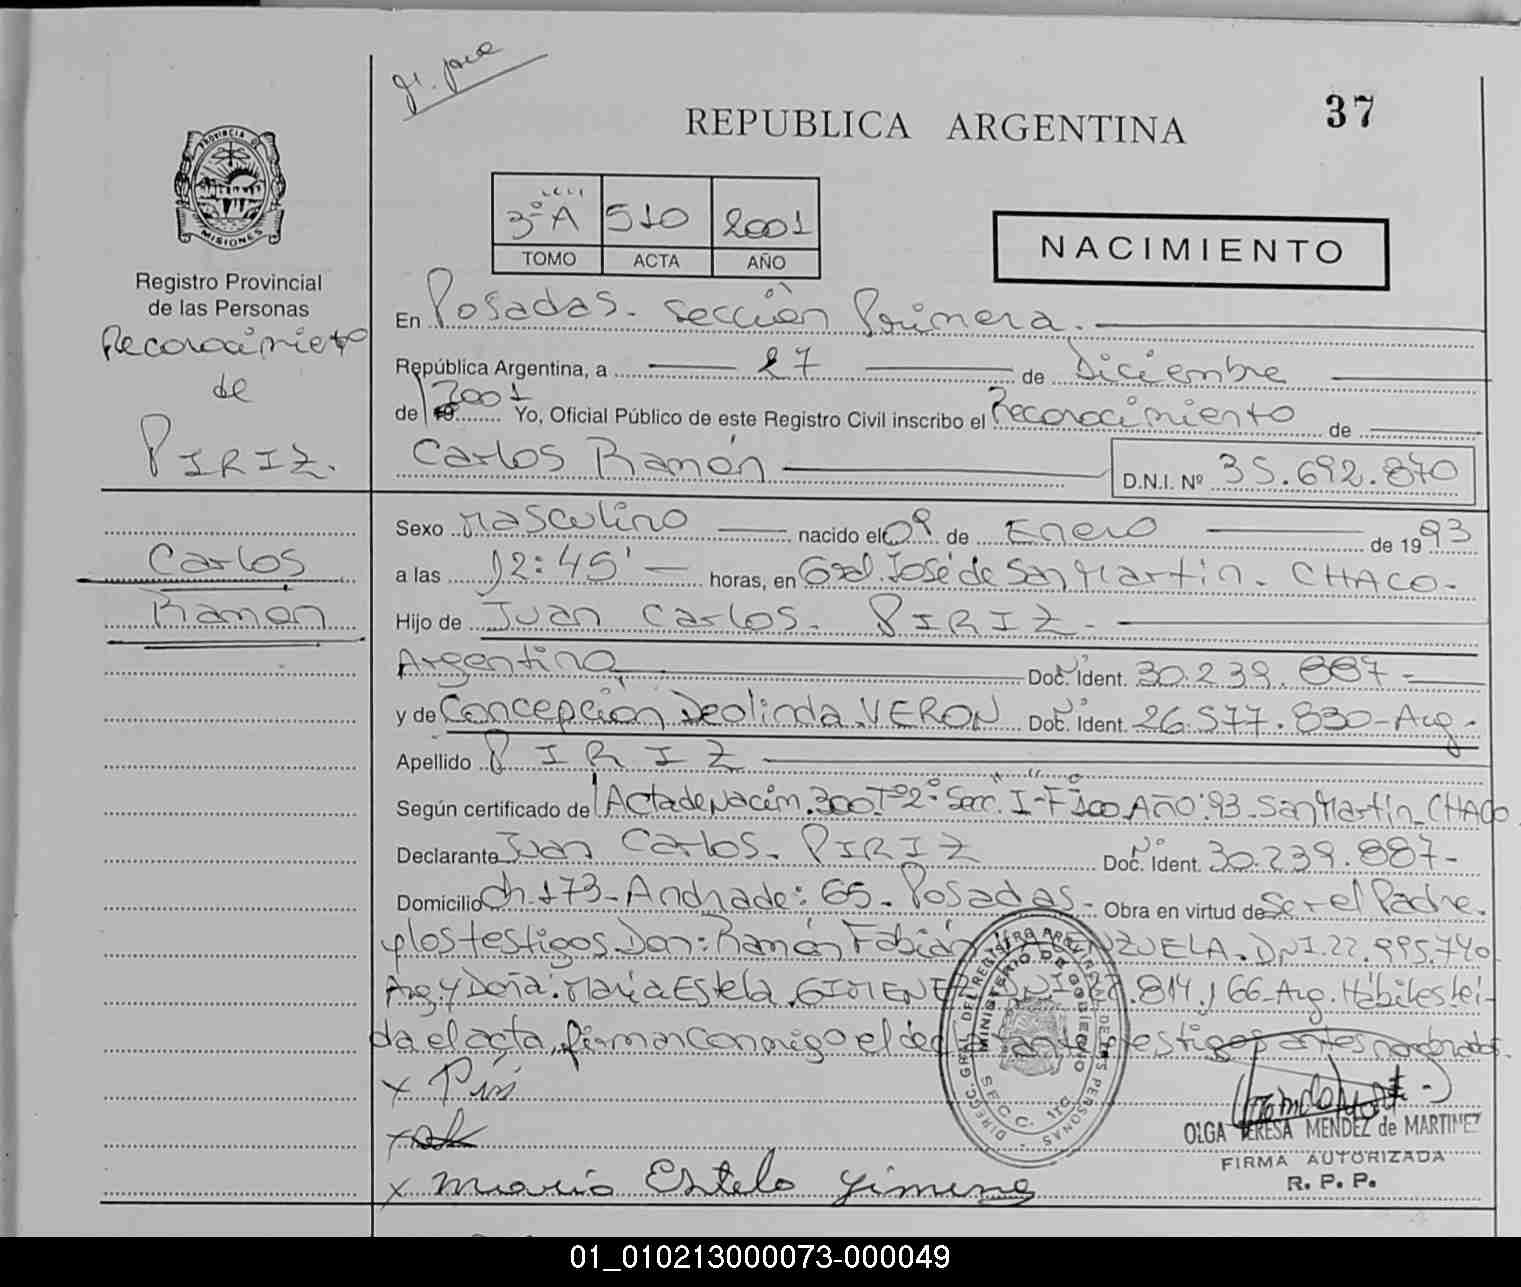 37
REPUBLICA ARGENTINA
PROVINCIA DE
MISIONES
Registro Provincial
de las Personas
Reconocimiento
de
PIRIZ.
Carlos
Ramon
3º A 510 2001
TOMO ACTA AÑO
NACIMIENTO
En Posadas. Sección Primera.
República Argentina, a 27 de Diciembre
de 2001 Yo, Oficial Público de este Registro Civil inscribo el Reconocimiento de
Carlos Ramón D.N.I. Nº 35.692.870
Sexo Masculino nacido el 09 de Enero de 1993
a las 12:45' horas, en Gral. José de San Martin - CHACO -
Hijo de Juan Carlos. PIRIZ -
Argentino Doc. Ident. 30.239.887 -
y de Concepción Deolinda VERON Doc. Ident. 26.577.830 - Arg -
Apellido PIRIZ
Según certificado de Acta de Nacim. 300 Tº 2º Secc. I - Fº 100 Año '93 - San Martin - CHACO
Declarante Juan Carlos. PIRIZ Doc. Ident. 30.239.887 -
Domicilio ch. 173 - Andrade: 65 - Posadas - Obra en virtud de Ser el Padre.
y los testigos Don: Ramón Fabián ZUELA. DNI. 22.995.740
Arg. y Doña: María Estela GIMENEZ DNI .814.166 - Arg. Hábiles leí-
da el acta, firman conmigo el testigos antes nombrados.
x Piriz
x
x Maria Estela Gimenez
DIREGC. GRAL DEL REGISTRO PROVINCIAL DE LAS PERSONAS
MINISTERIO DE GOBIERNO
SECC. 1RO
OLGA TERESA MENDEZ de MARTINEZ
FIRMA AUTORIZADA
R. P. P.
01_010213000073-000049